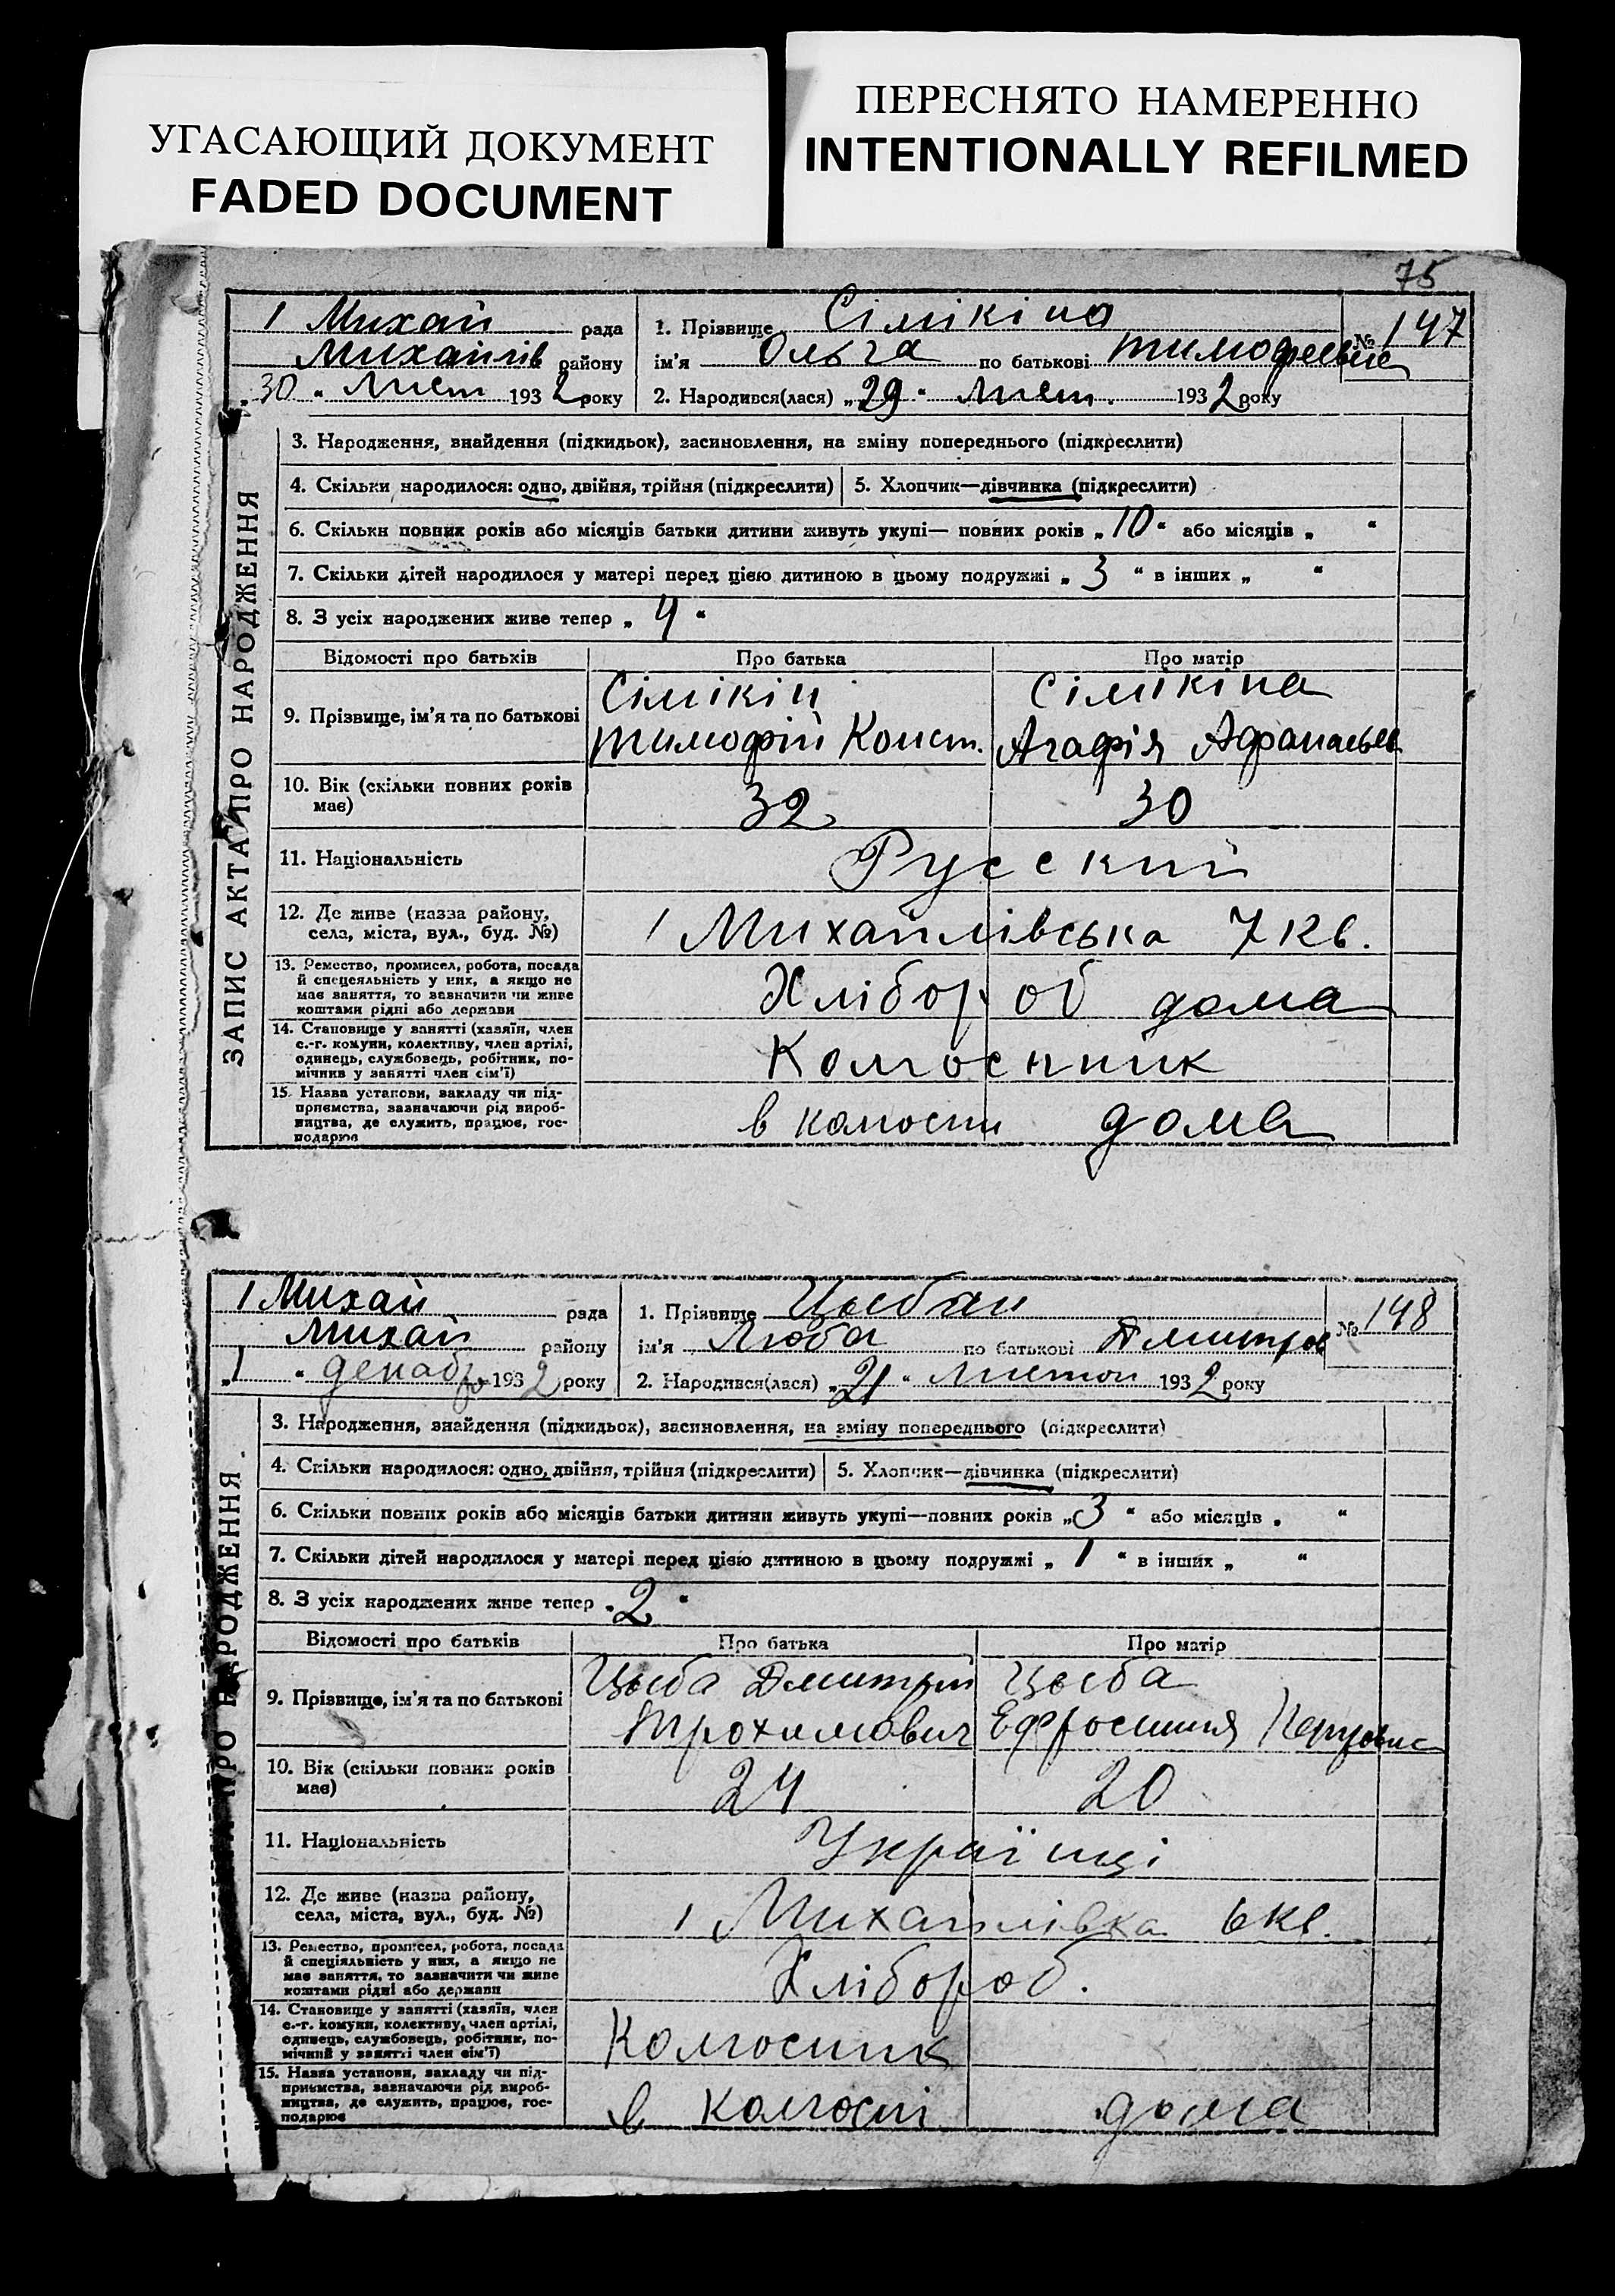 УГАСАЮЩИЙ ДОКУМЕНТ
FADED DOCUMENT
ПЕРЕСНЯТО НАМЕРЕННО
INTENTIONALLY REFILMED
75
ЗАПИС АКТА ПРО НАРОДЖЕННЯ
1 Михай рада
Михайлів району
„30“ Лист 1932 року
1. Прізвище Сімікіна
№ 147
ім'я Ольга по батькові Тимофеевна
2. Народився(лася) „29“ Лист. 1932 року
3. Народження, знайдення (підкидьок), засиновлення, на зміну попереднього (підкреслити)
4. Скільки народилося: одно, двійня, трійня (підкреслити) 5. Хлопчик—дівчинка (підкреслити)
6. Скільки повних років або місяців батьки дитини живуть укупі— повних років „10“ або місяців „ “
7. Скільки дітей народилося у матері перед цією дитиною в цьому подружжі „3“ в інших „ “
8. З усіх народжених живе тепер „4“
Відомості про батьків Про батька Про матір
9. Прізвище, ім'я та по батькові
Сімікін
Тимофій Конст.
Сімікіна
Агафія Афанасьев
10. Вік (скільки повних років
має)
32 30
11. Національність Русский
12. Де живе (назва району,
села, міста, вул., буд. №)
1 Михайлівська 7 кв.
13. Ремество, промисел, робота, посада
й спеціяльність у них, а якщо не
має заняття, то зазначити чи живе
коштами рідні або держави
Хлібороб дома
14. Становище у занятті (хазяїн, член
с.-г. комуни, колективу, член артілі,
одинець, службовець, робітник, по-
мічник у занятті член сім'ї)
Колгоспник
15. Назва установи, закладу чи під-
приємства, зазначаючи рід вироб-
ництва, де служить, працює, гос-
подарює
в дома
ПРО НАРОДЖЕННЯ
1 Михай рада
Михай району
„1“ декабр 1932 року
1. Прізвище
№ 148
ім'я Люба по батькові Дмитров
2. Народився(лася) „21“ Листоп 1932 року
3. Народження, знайдення (підкидьок), засиновлення, на зміну попереднього (підкреслити)
4. Скільки народилося: одно, двійня, трійня (підкреслити) 5. Хлопчик—дівчинка (підкреслити)
6. Скільки повних років або місяців батьки дитини живуть укупі—повних років „3“ або місяців „ “
7. Скільки дітей народилося у матері перед цією дитиною в цьому подружжі „1“ в інших „ “
8. З усіх народжених живе тепер „2“
Відомості про батьків Про батька Про матір
9. Прізвище, ім'я та по батькові
Цыба Дмитрий
Трохимович
Цыба
Ефросиния
10. Вік (скільки повних років
має)
24 20
11. Національність Українці
12. Де живе (назва району,
села, міста, вул., буд. №)
1 Михайлівка 6 кв.
13. Ремество, промисел, робота, посада
й спеціяльність у них, а якщо не
має заняття, то зазначити чи живе
коштами рідні або держави
Хлібороб.
14. Становище у занятті (хазяїн, член
с.-г. комуни, колективу, член артілі,
одинець, службовець, робітник, по-
мічний у занятті член сім'ї)
Колгоспник
15. Назва установи, закладу чи під-
приємства, зазначаючи рід вироб-
ництва, де служить, працює, гос-
подарює
в колгоспі дома